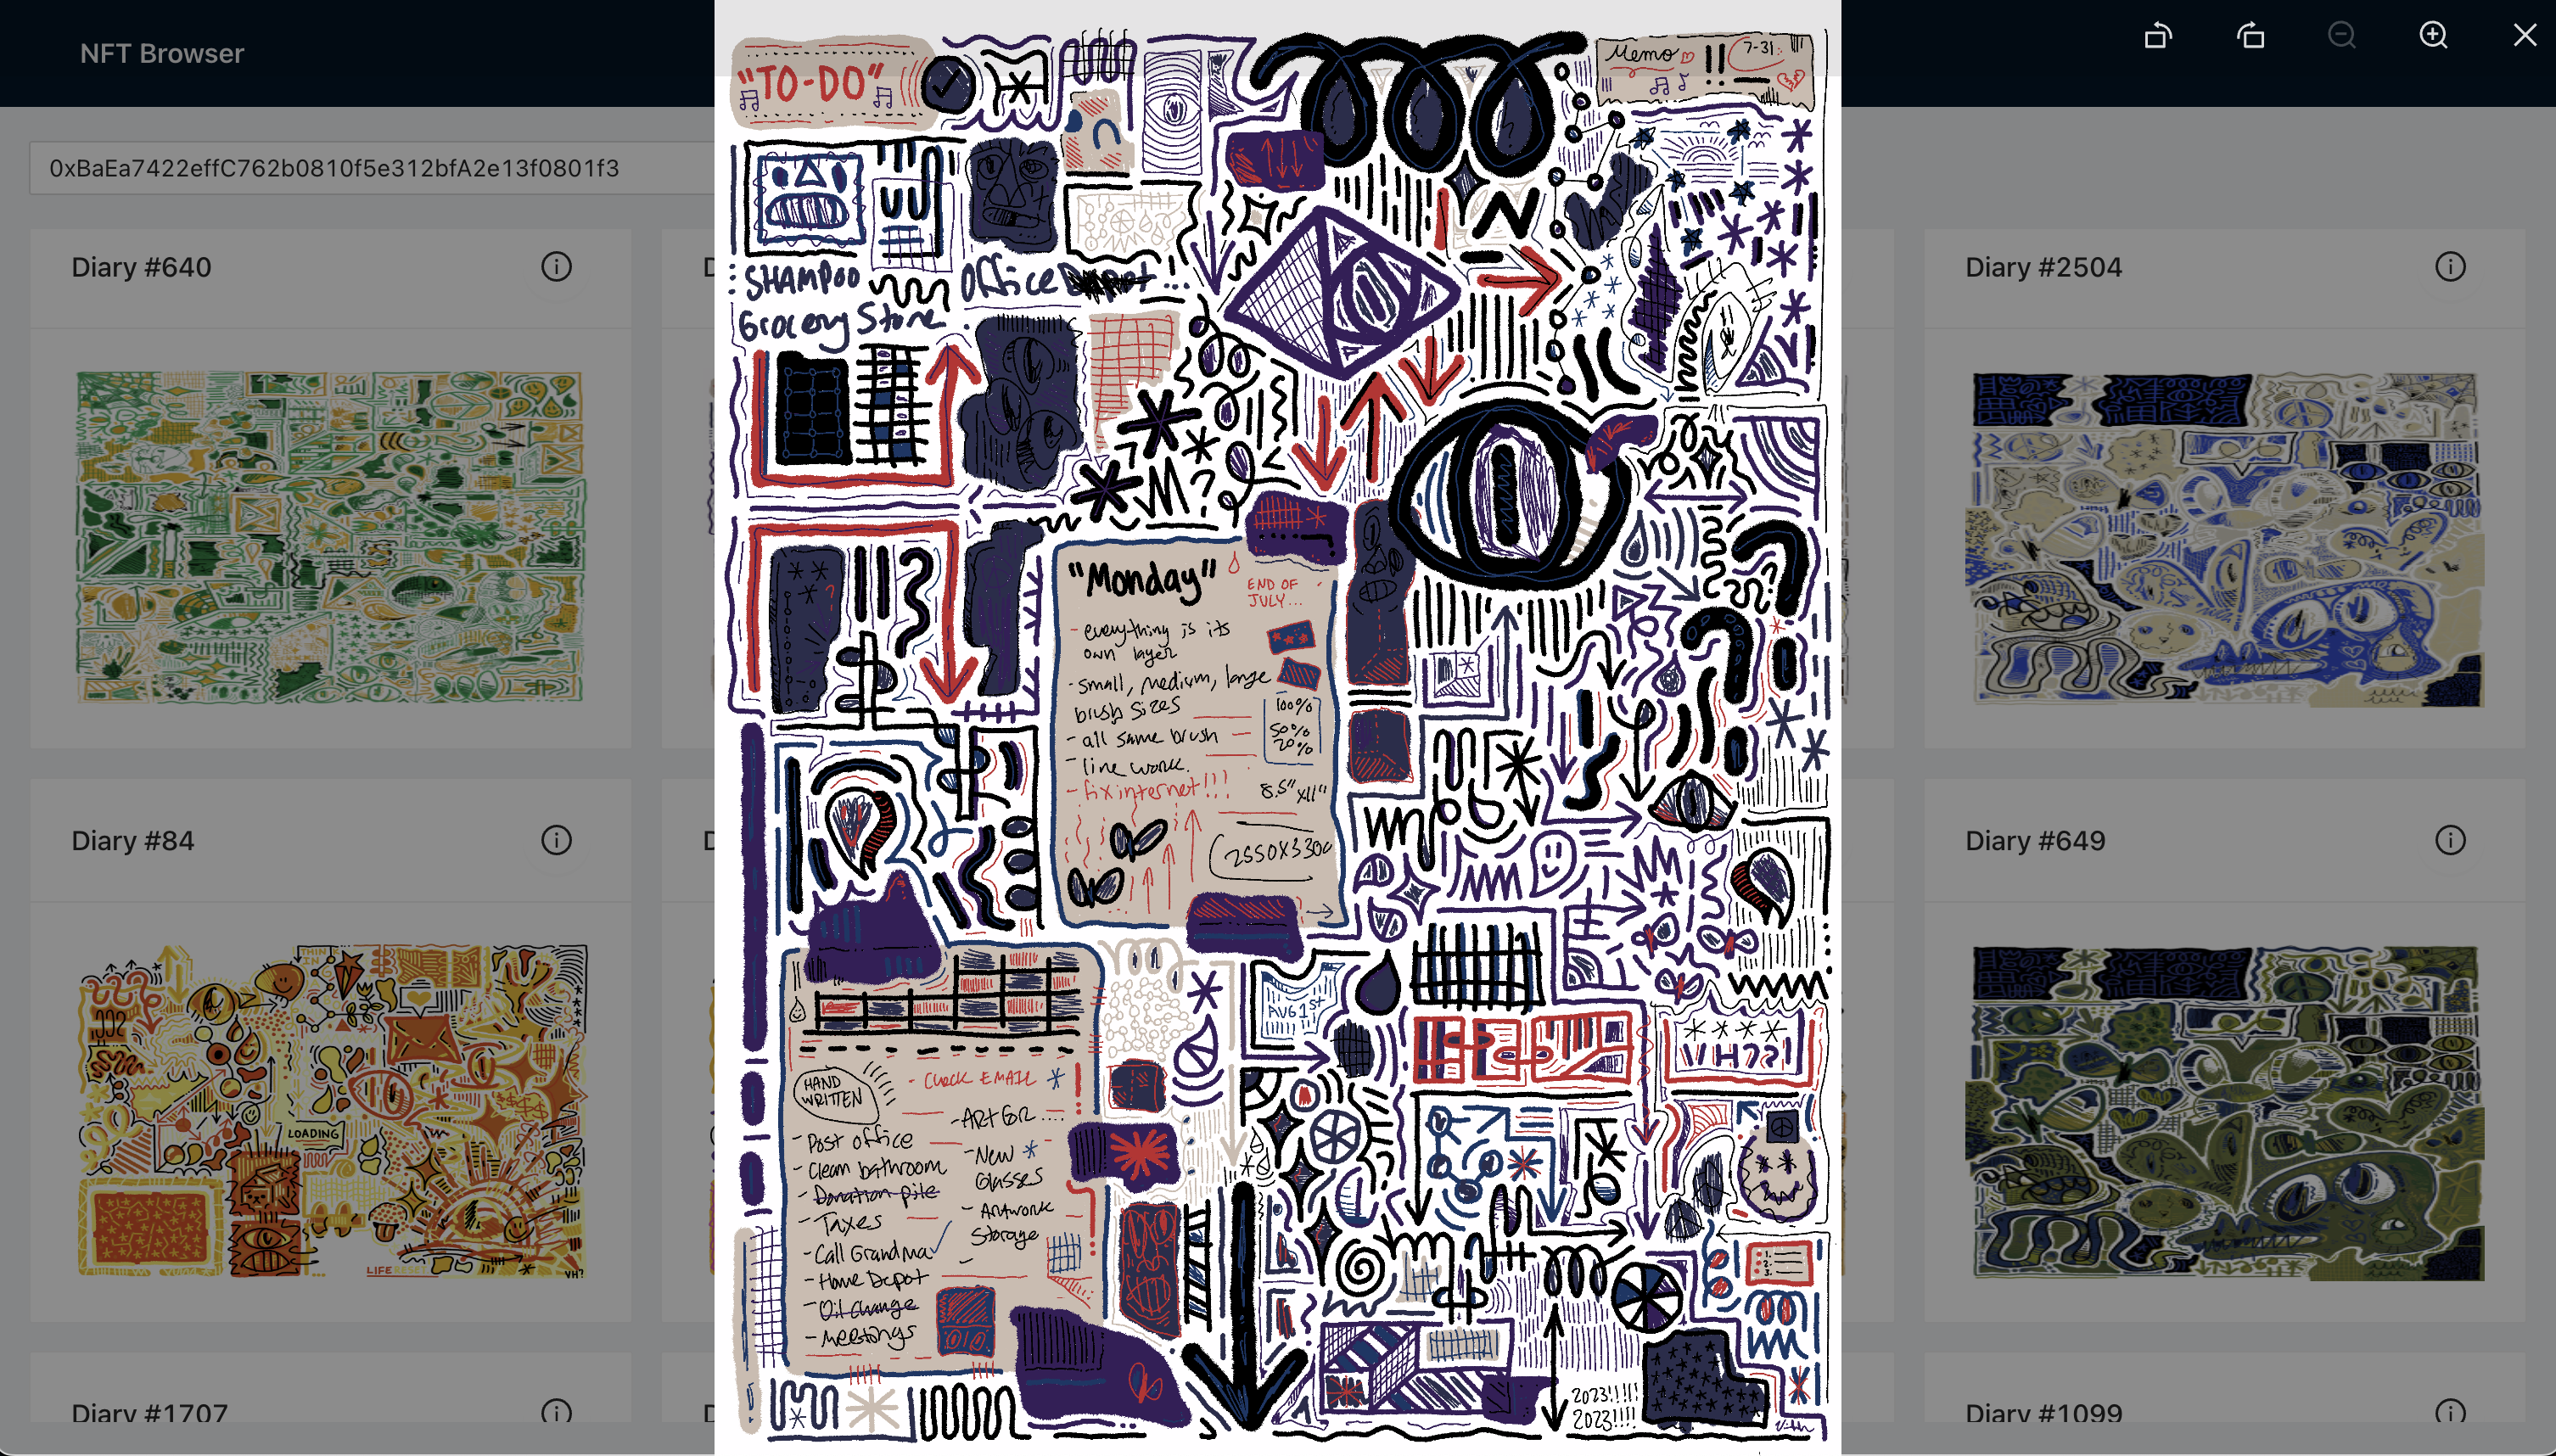 NFT Browser
0xBaEa7422effC762b0810f5e312bfA2e13f0801f3
Diary #640
Diary #2504
Diary #84
Diary #649
LOADING
LIFE
VH?
Diary #1707
Diary #1099
"TO-DO"
Memo
!!
7-31
SHAMPOO
Office Depot
Grocery Store
?
"Monday"
END OF
JULY...
- everything is its
own layer
- small, medium, large
brush sizes
- all same brush
- line work.
- fix internet!!!
100%
50%
20%
8.5" x11"
2550X3300
AUG 1st
VH??!
HAND
WRITTEN
- CHECK EMAIL *
- Art for ....
- Post office
- Clean bathroom
- Donation pile
- Taxes
- Call Grandma
- Home Depot
- Oil change
- Meetings
- New *
Glasses
- Artwork
Storage
-
1.
2.
3.
2023!!!!!
2023!!!!